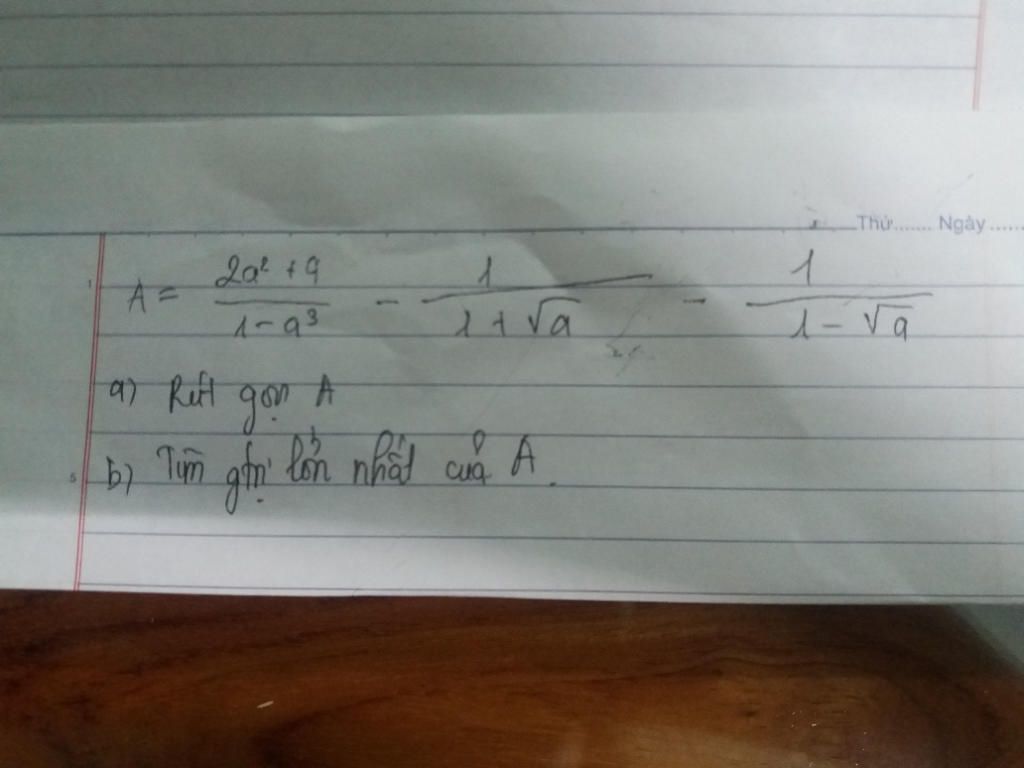 Thứ....... Ngày......
A = \frac{2a² + 9}{1 - a³} - \frac{1}{1 + √a} - \frac{1}{1 - √a}
a) Rút gọn A
b) Tìm gtrị lớn nhất của A.